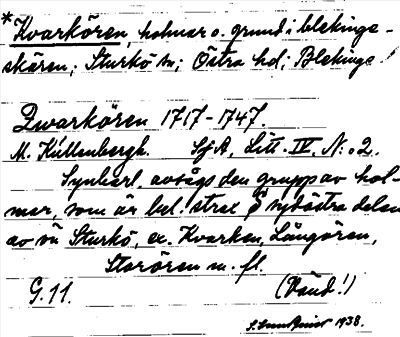 *Kvarkören, holmar o. grund i blekinge-
skären; Sturkö sn; Östra hd; Blekinge
Qwarkören 1717-1747.
M. Küllenbergh. SjA, Litt. IV. N:o 2.
Synbarl. avsågs den grupp av hol-
mar, som är bel. strax sydöstra delen
av Sturkö, ex. Kvarken, Långören,
Storören m. fl.
G. 11. (Vänd!)
1938.